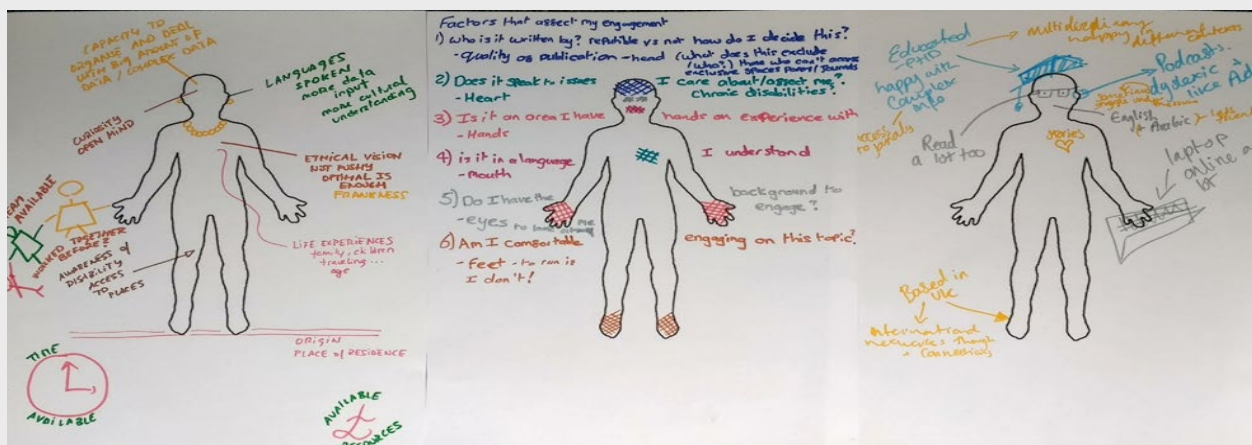 CAPACITY TO
ORGANISE AND DEAL
WITH BIG AMOUNT OF
DATA / COMPLEX
DATA
LANGUAGES
SPOKEN
more data
input
more cultural
understanding
CURIOSITY
OPEN MIND
ETHICAL VISION
NOT PUSHY
OPTIMAL IS
ENOUGH
FRANKNESS
TEAM
AVAILABLE
WORKED TOGETHER
BEFORE?
AWARENESS of
DISABILITY
ACCESS
TO
PLACES
LIFE EXPERIENCES
family, children
traveling...
age
ORIGIN
PLACE of RESIDENCE
TIME
AVAILABLE
AVAILABLE
£
RESOURCES
Factors that affect my engagement
1) Who is it written by? reputible vs not how do I decide this?
- quality of publication - head (what does this exclude
(who?) those who can't access
exclusive spaces
2) Does it speak to issues I care about/affect me?
- Heart Chronic disabilities?
3) Is it an area I have hands on experience with
- Hands
4) is it in a language I understand
- mouth
5) Do I have the background to
- eyes engage?
6) Am I comfortable engaging on this topic?
- feet - to run if
I don't!
Educated
- PHD
happy with
Complex
info
multidisciplinary
happy in
different
Podcasts.
dyslexic
like Aud
access
to
Read
a lot too
English
+ Arabic
stories
laptop
online a
lot
Based in
UK
International
networks though
+ connections